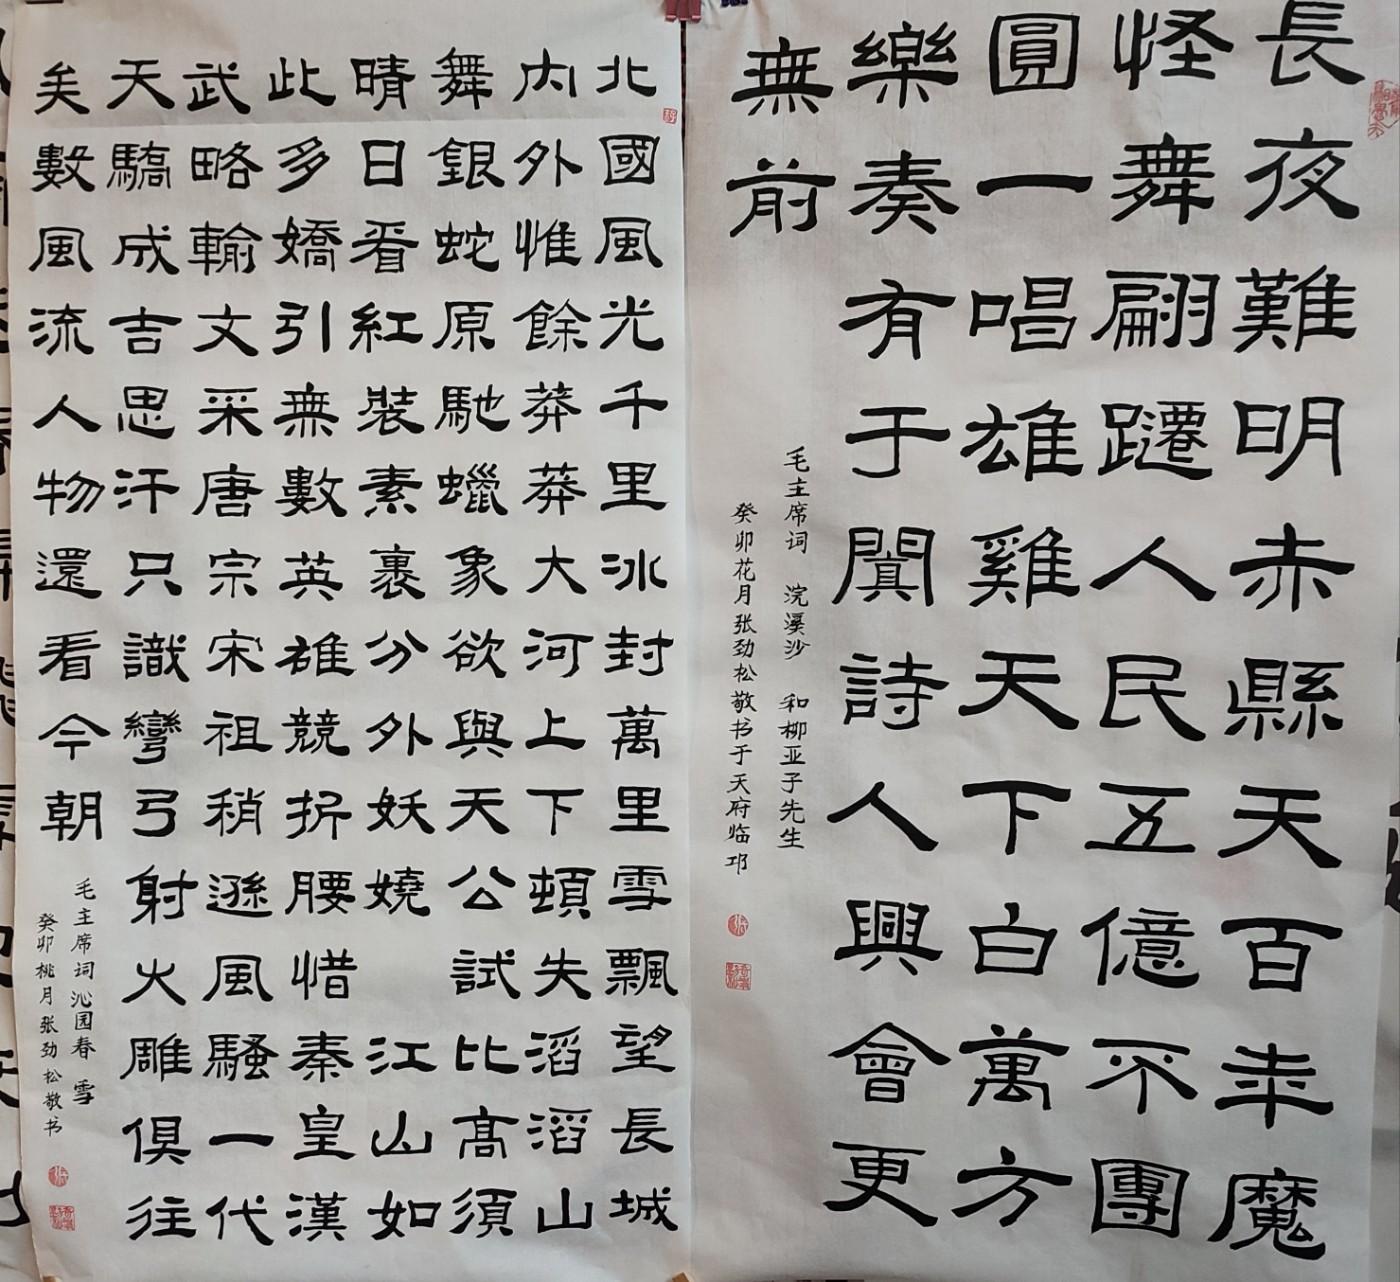 長夜難明赤縣天百年魔
怪舞翩躚人民五億不團
圓一唱雄雞天下白萬方
樂奏有于闐詩人興會更
無前
毛主席词 浣溪沙 和柳亚子先生
癸卯花月张劲松敬书于天府临邛
北國風光千里冰封萬里雪飄望長城
内外惟餘莽莽大河上下頓失滔滔山
舞銀蛇原馳蠟象欲與天公試比高須
晴日看紅裝素裹分外妖嬈 江山如
此多嬌引無數英雄競折腰惜秦皇漢
武略輸文采唐宗宋祖稍遜風騷一代
天驕成吉思汗只識彎弓射火雕俱往
矣數風流人物還看今朝
毛主席词沁园春 雪
癸卯桃月张劲松敬书